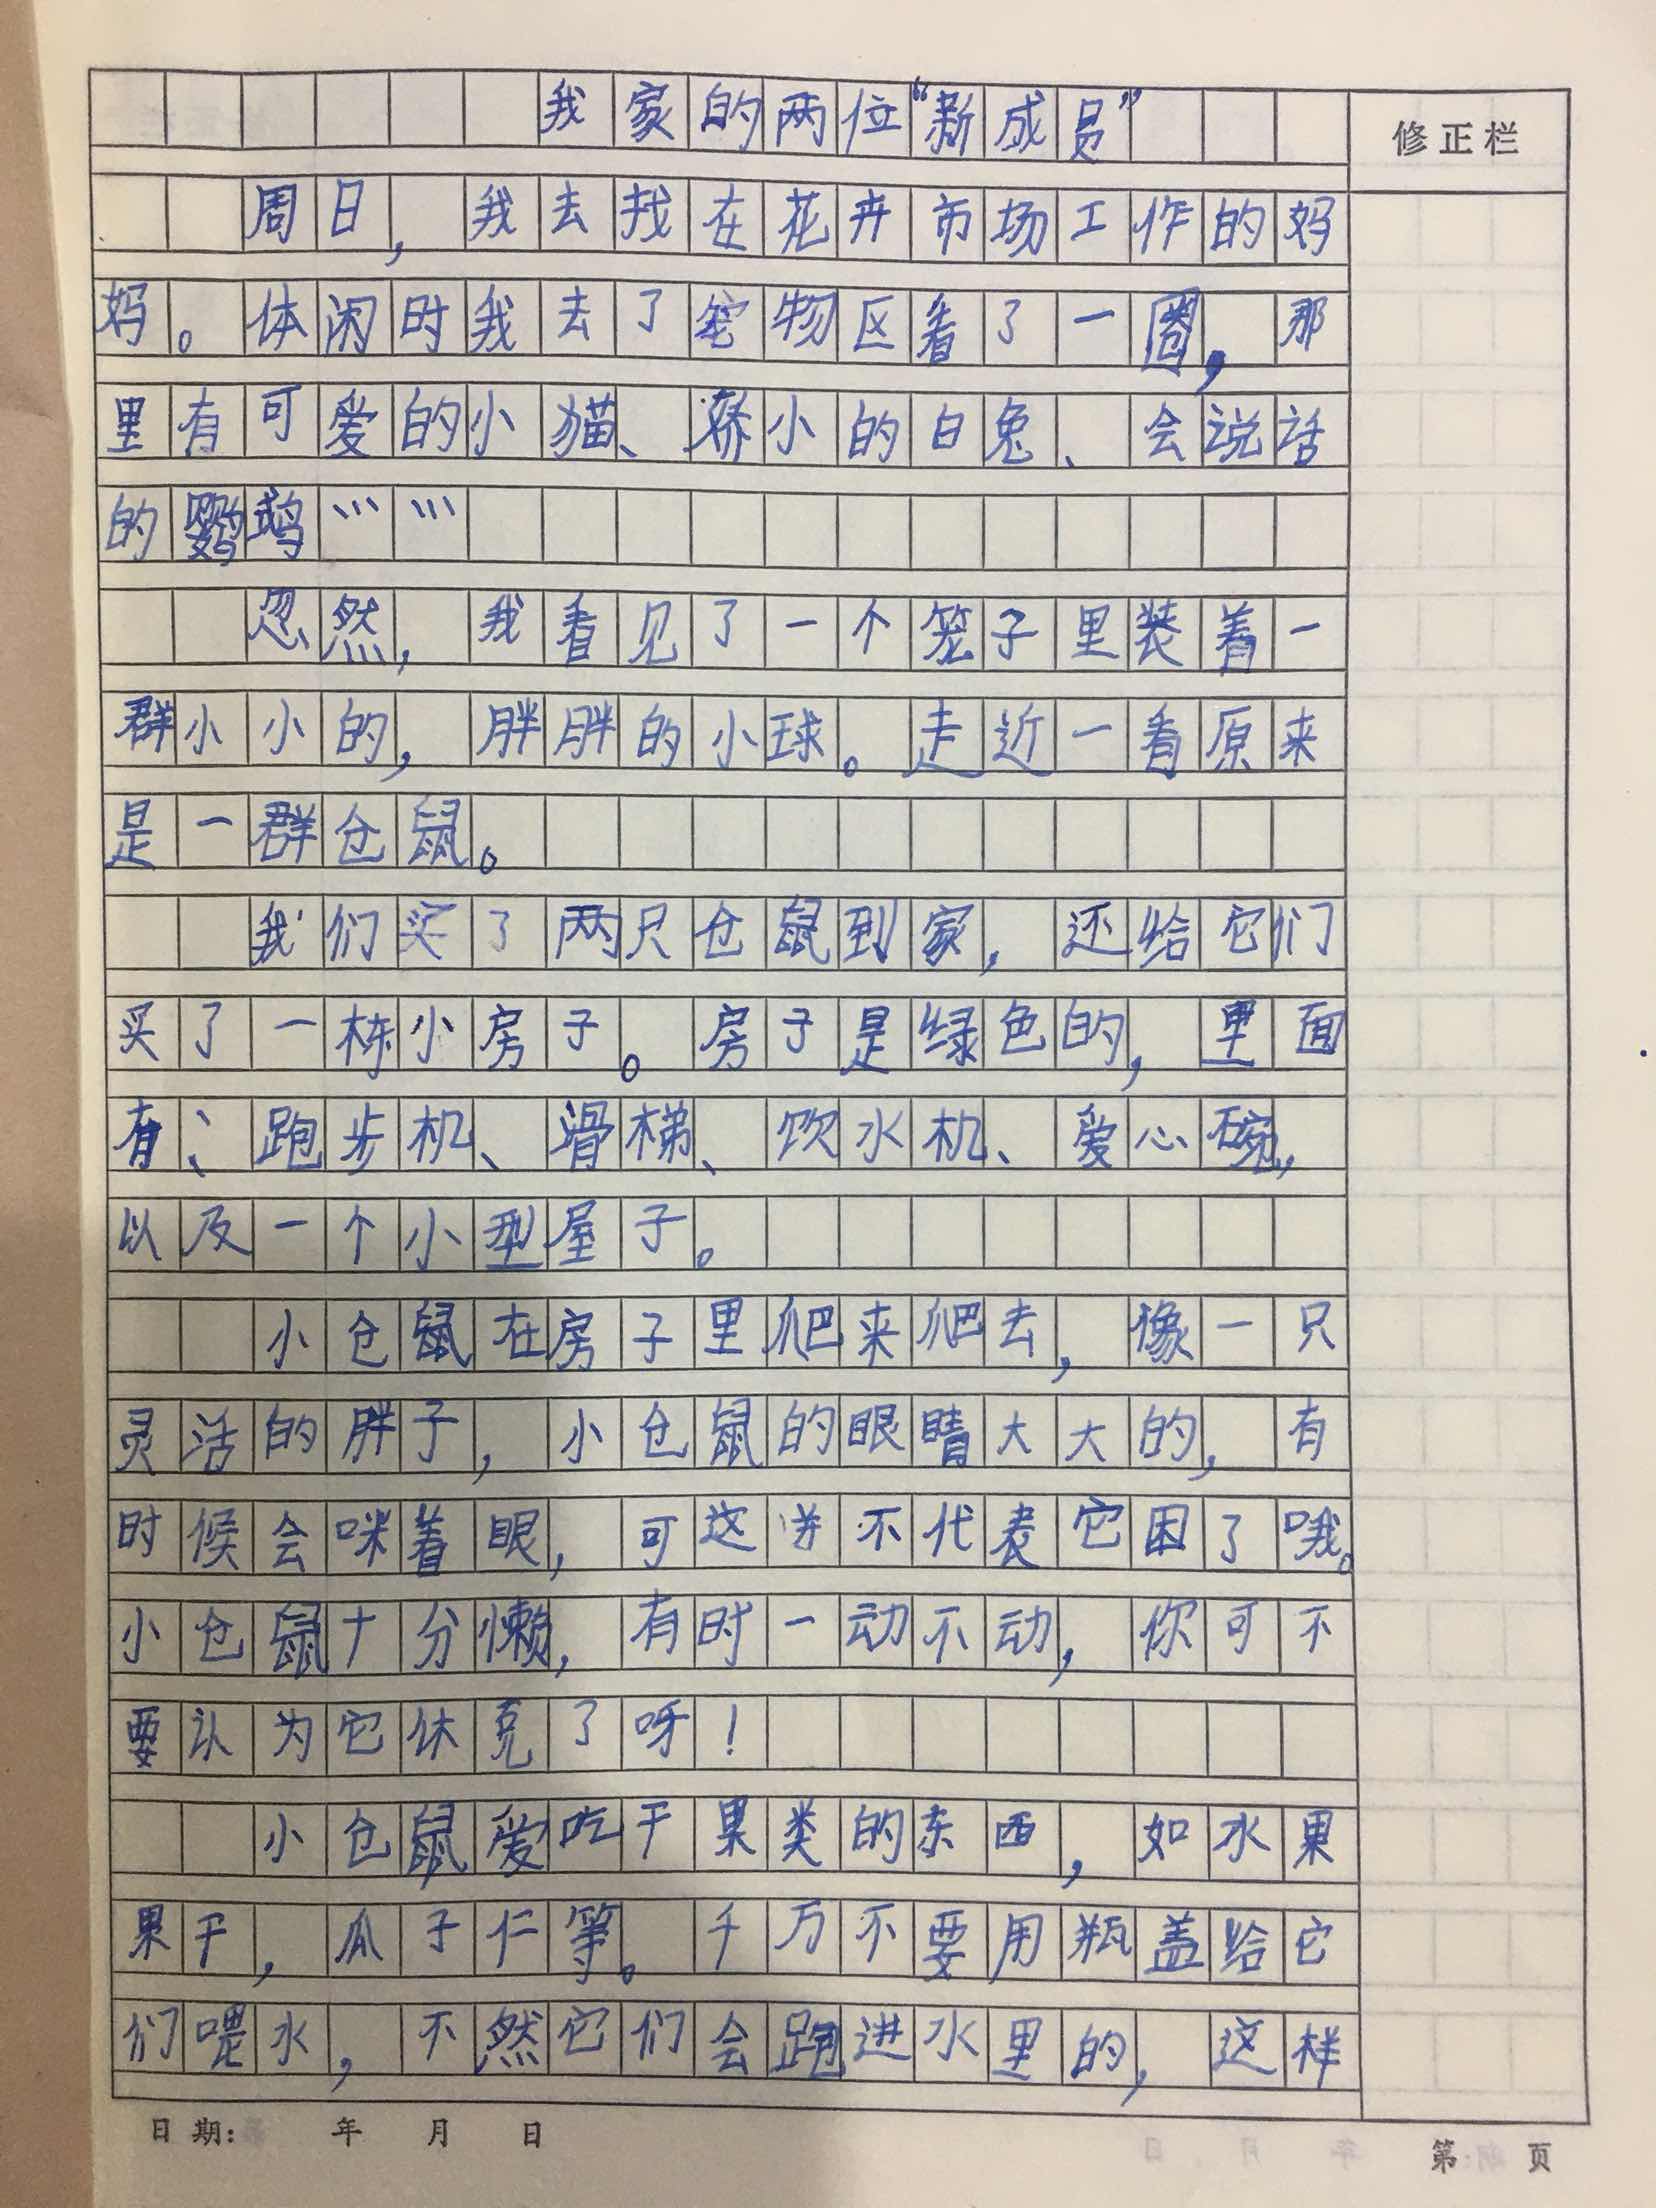 我家的两位“新成员”
修正栏
周日，我去找在花卉市场工作的妈
妈。休闲时我去了宠物区看了一圈，那
里有可爱的小猫、娇小的白兔、会说话
的鹦鹉……
忽然，我看见了一个笼子里装着一
群小小的，胖胖的小球。走近一看原来
是一群仓鼠。
我们买了两只仓鼠到家，还给它们
买了一栋小房子。房子是绿色的，里面
有、跑步机、滑梯、饮水机、爱心碗，
以及一个小型屋子。
小仓鼠在房子里爬来爬去，像一只
灵活的胖子，小仓鼠的眼睛大大的，有
时候会咪着眼，可这并不代表它困了哦。
小仓鼠十分懒，有时一动不动，你可不
要认为它休克了呀！
小仓鼠爱吃干果类的东西，如水果
果干，瓜子仁等。千万不要用瓶盖给它
们喂水，不然它们会跑进水里的，这样
日期： 年 月 日
第 页